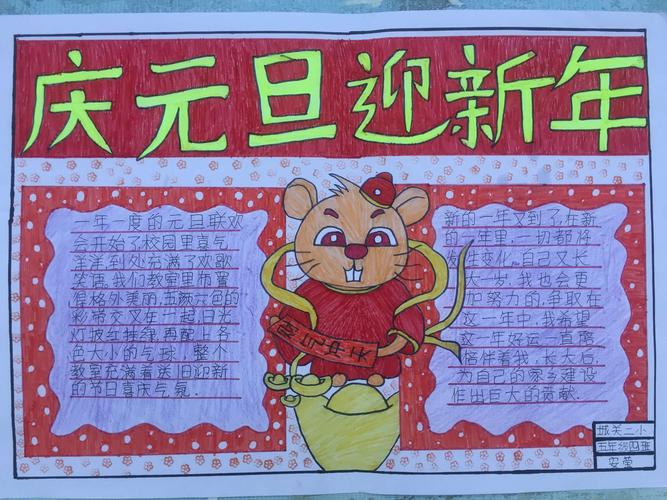 庆元旦迎新年
一年一度的元旦联欢
会开始了校园里喜气
洋洋到处充满了欢歌
笑语,我们教室里布置
得格外美丽,五颜六色的
彩带交叉在一起,日光
灯披红挂绿,再配上各
色大小的气球,整个
教室充满着送旧迎新
的节日喜庆气氛.
新的一年又到了,在新
的一年里,一切都将
发生变化,自己又长
大一岁,我也会更
加努力的,争取在
这一年中,我希望
这一年好运一直陪
陪伴着我,长大后,
为自己的家乡建设
作出巨大的贡献.
城关二小
五年级四班
安莹